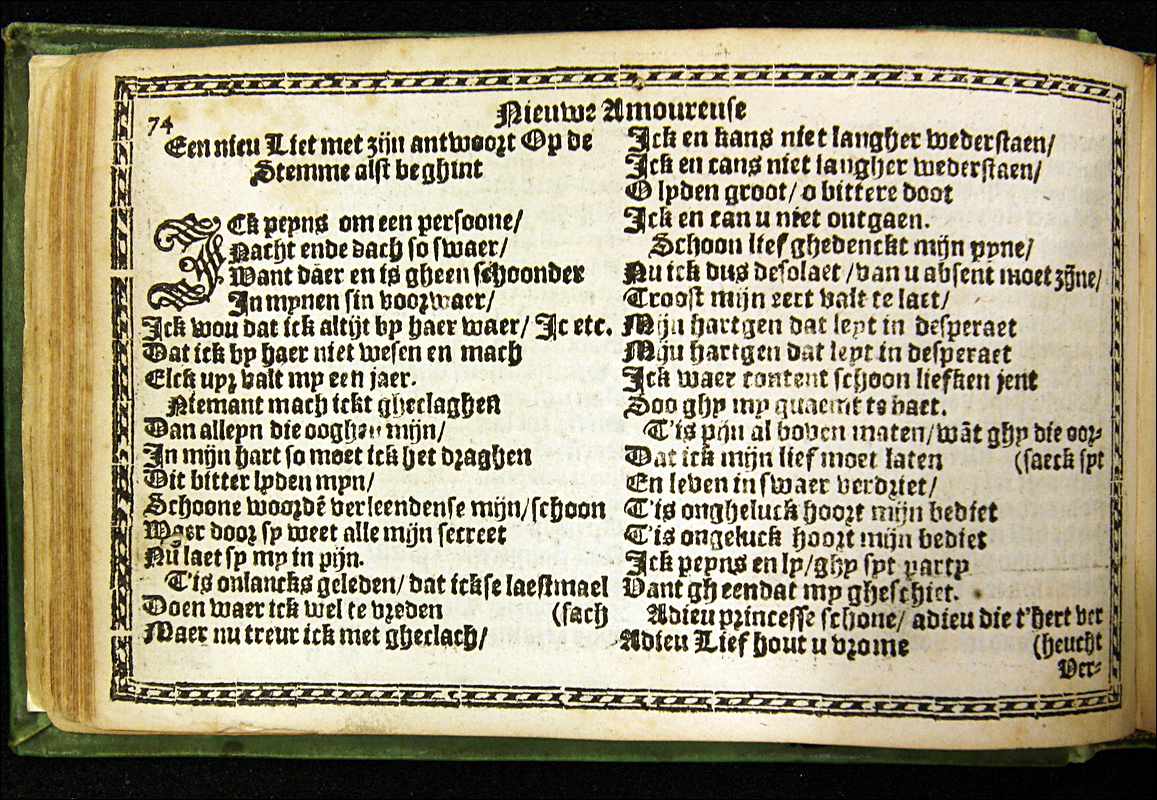 74
Nieuwe Amoureuse
Een nieu Liet met zijn antwoort Op de
Stemme alst beghint
ICk peyns om een persoone/
Nacht ende dach so swaer/
Want daer en is gheen schoonder
In mynen sin voorwaer/
Ick wou dat ick altijt by haer waer/ Ic etc.
Dat ick by haer niet wesen en mach
Elck uyr valt my een jaer.
Niemant mach ickt gheclaghen
Dan alleyn die ooghen mijn/
In mijn hart so moet ick het draghen
Dit bitter lyden myn/
Schoone woordē verleendense mijn/schoon
Waer door sy weet alle mijn secreet
Nu laet sy my in pijn.
T'is onlancks geleden/ dat ickse laestmael
Doen waer ick wel te vreden (sach
Maer nu treur ick met gheclach/
Ick en kans niet langher wederstaen/
Ick en cans niet langher wederstaen/
O lyden groot/ o bittere doot
Ick en can u niet ontgaen.
Schoon lief ghedenckt mijn pyne/
Nu ick dus desolaet /van u absent moet zijne/
Troost mijn eert valt te laet/
Mijn hartgen dat leyt in desperaet
Mijn hartgen dat leyt in desperaet
Ick waer content schoon liefken jent
Soo ghy my quaemt te baet.
T'is pijn al boven maten/wāt ghy die oor-
Dat ick mijn lief moet laten (saeck syt
En leven in swaer verdriet/
T'is ongheluck hoort mijn bediet
T'is ongeluck hoort mijn bediet
Ick peyns en ly/ghy syt party
Vant gh eendat my gheschiet.
Adieu princesse schone/ adieu die t'hert ver
Adieu Lief hout u vrome (heucht
Ver-